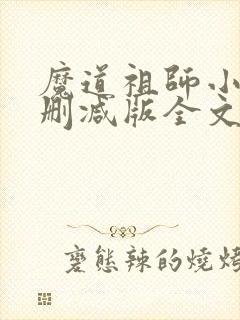 魔道祖師小
刪減版全文
變態辣的燒烤